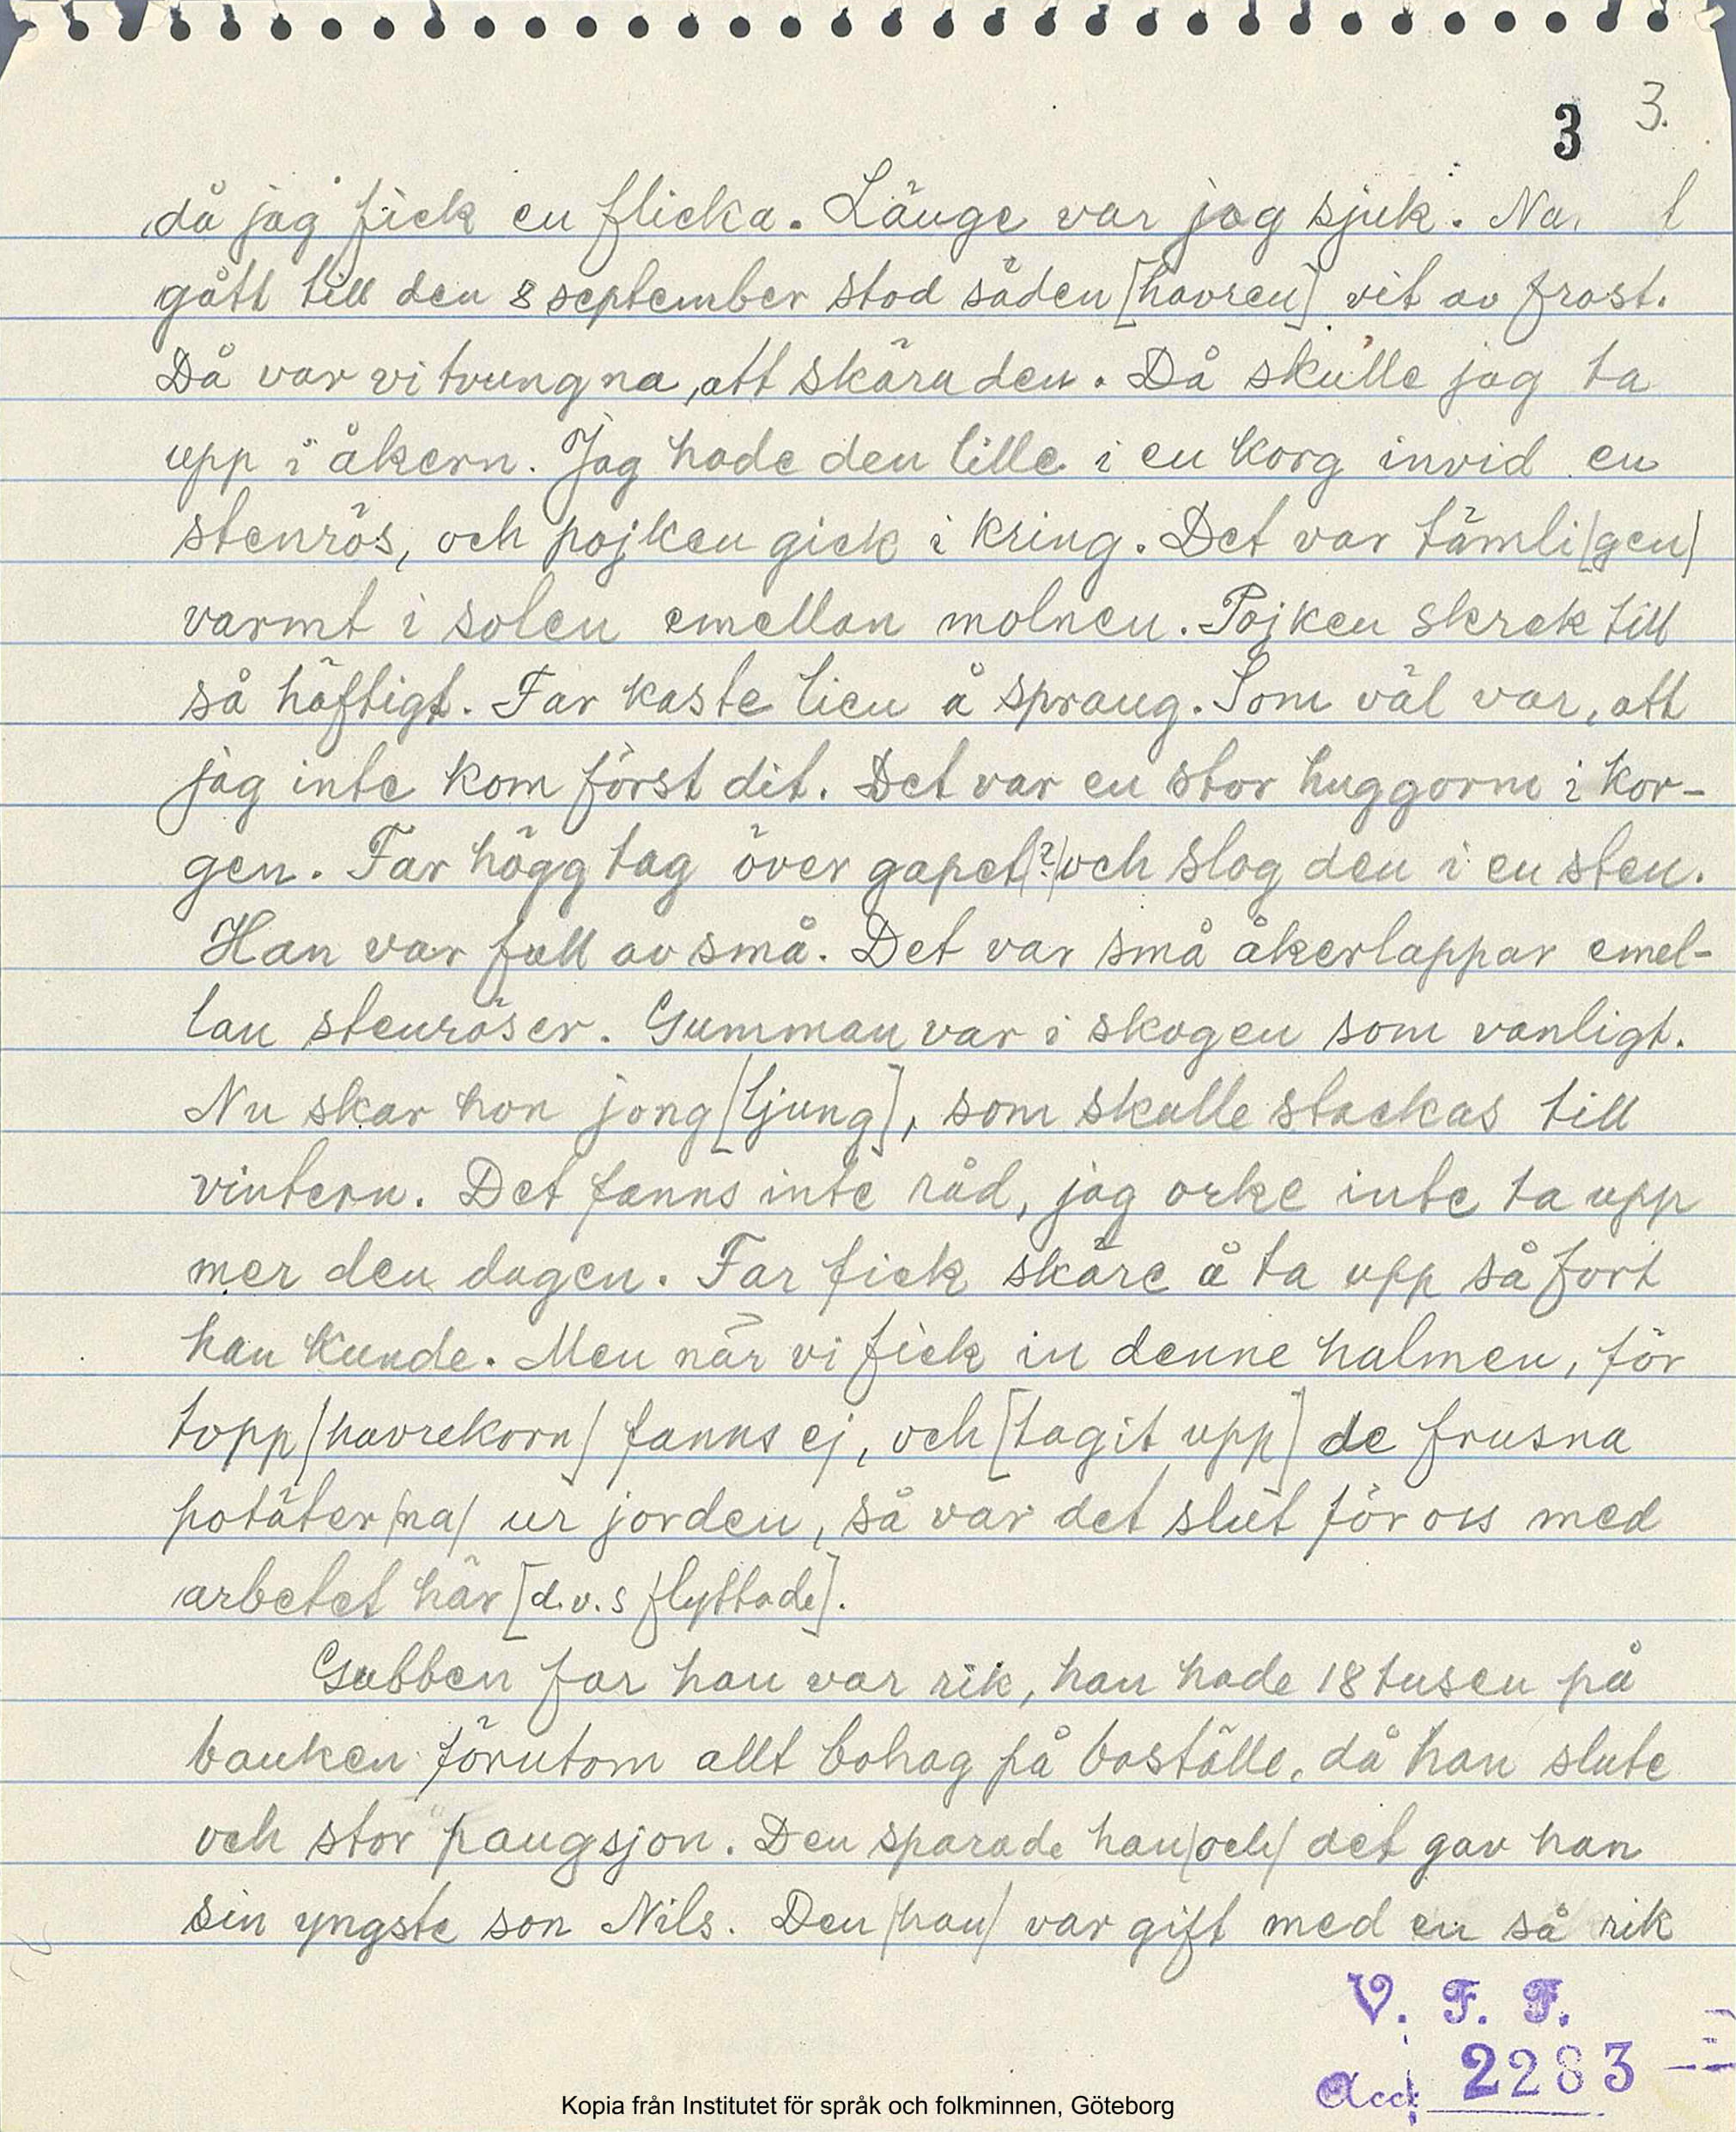 3 3.
då jag fick en flicka. Länge var jag sjuk.
gått till den 8 september stod säden [havren] vit av frost.
Då var vi tvungna, att skära den. Då skulle jag ta
upp i åkern. Jag hade den lille i en korg invid en
stenrös, och pojken gick i kring. Det var tämli/gen/
varmt i solen emellan molnen. Pojken skrek till
så häftigt. Far kaste lien å sprang. Som väl var, att
jag inte kom först dit. Det var en stor huggorm i kor-
gen. Far högg tag över gapet/?/och slog den i en sten.
Han var full av små. Det var små åkerlappar emel-
lan stenröser. Gumman var i skogen som vanligt.
Nu skar hon jong [ljung], som skulle stackas till
vintern. Det fanns inte råd, jag orke inte ta upp
mer den dagen. Far fick skäre å ta upp så fort
han kunde. Men när vi fick in denne halmen, för
topp/havrekorn/ fanns ej, och [tagit upp] de frusna
potäter/na/ ur jorden, så var det slut för oss med
arbetet här [d.v.s flyttade].
Gubben far han var rik, han hade 18 tusen på
banken förutom allt bohag på boställe, då han slute
och stor pangsjon. Den sparade han/och/ det gav han
sin yngste son Nils. Den /han/ var gift med en så rik
V. F. F.
Acc. 2283
Kopia från Institutet för språk och folkminnen, Göteborg